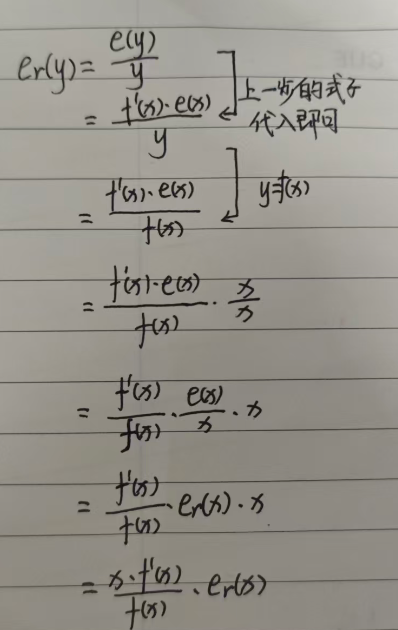 er(y) = e(y)/y
= f'(x)·e(x)/y
上一步的式子
代入即可
= f'(x)·e(x)/f(x)
y=f(x)
= f'(x)·e(x)/f(x) · x/x
= f'(x)/f(x) · e(x)/x · x
= f'(x)/f(x) · er(x) · x
= x·f'(x)/f(x) · er(x)